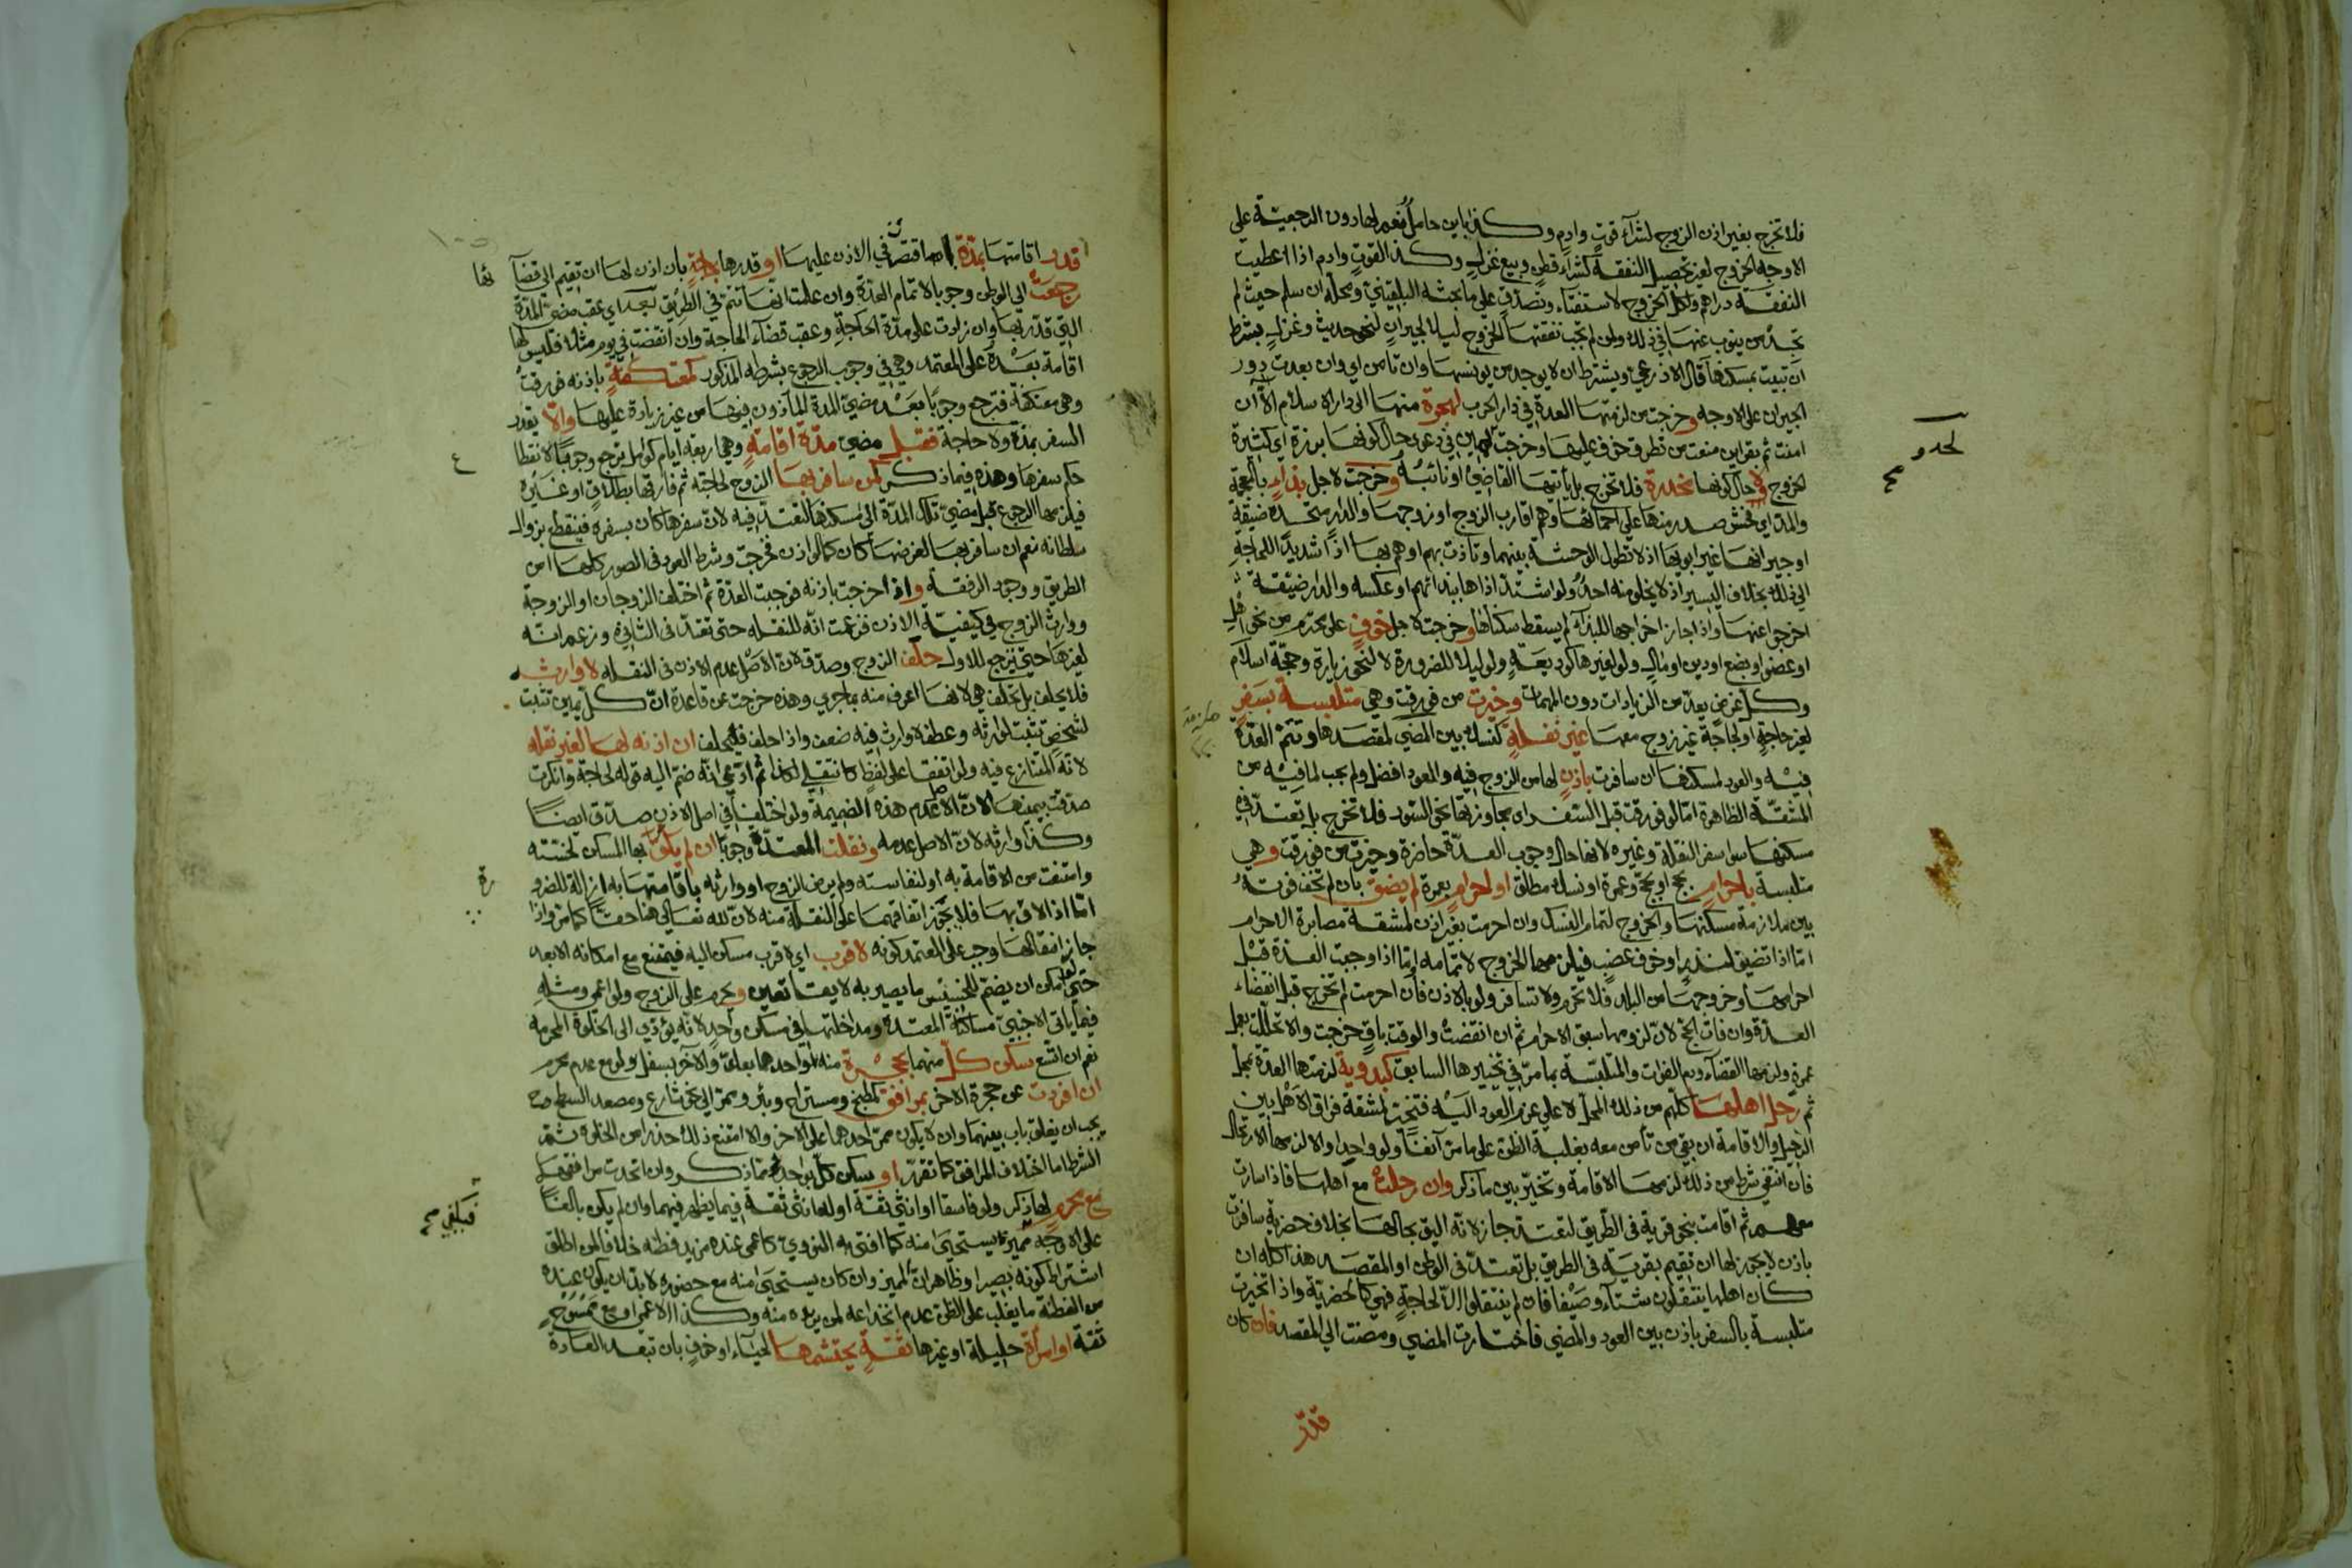 فلا تخرج بغير اذن الزوج لشرآء قوتٍ وادمٍ وكذا باين حامل نعم لها دون الرجعية على
الاوجه الخروج لغير تحصيل النفقة كشراء قطن وبيع غزل وكذا القوت وادم اذا اعطيت
النفقة دراهم ولكل الخروج لاستفتاء وتصدق على ما بحثه البلقيني ومحله ان سلم حيث لم
تجد من ينوب عنها في ذلك ولمن لم تجب نفقتها الخروج ليلا لجيران لنحو حديث وغزل بشرط
ان تبيت بمسكنها قال الاذرعي ويشترط ان لا يوجد من يونسها وان تامن اي وان بعدت دور
الجيران على الاوجه وخرجت من لزمتها العدة في دار الحرب لهجرة منها الى دار الاسلام الا ان
امنت ثم بقراين منعت من تطرق خوف عليها وخرجت ليمين في دعوى حال كونها برزة اي كثيرة
الخروج ولا حال كونها مخدرة فلا تخرج بل ياتيها القاضي او نائبه وخرجت لاجل بذاء بالمعجمة
والمد اي فحش صدر منها على احمائها وهم اقارب الزوج او زوجها والدار متحدة ضيقة
او جيرانها غير ابويها اذ لا تطول الوحشة بينهما وتاذت بهم او هم بها اذا شديدا للحاجة
الى ذلك بخلاف اليسير اذ لا يخلو منه احد ولو اشتد اذاها ببذائهم او عكسه والدار ضيقة
اخرجوا عنها واذا جاز اخراجها للبذاء لم يسقط سكناها وخرجت لاجل خوف على محترم من نحو
او عضو او بضع او دين او مال ولو لغيرها كوديعة ولو ليلا للضرورة لا لنحو زيارة وحجة اسلام
وكل غرض يعد من الزيادات دون المهمات وخيرت من فورقت وهي متلبسة بسفر
لغير حاجة او لحاجة غير زوج معها غير نقلة كنسك بين المضي لمقصدها وتتم العدة
فيه والعود لمسكنها ان سافرت باذن لها من الزوج فيه والعود افضل ولم يجب لما فيه من
المشقة الظاهرة اما لو فورقت قبل السفر اي مجاوزتها نحو السور فلا تخرج بل تعتد في
مسكنها سوا سفر النقلة وغيره لانها حال وجوب العدة حاضرة وخيرت من فورقت وهي
متلبسة باحرام بحج او بحج وعمرة او نسك مطلق او احرام بعمرة لم يضق بان لم تخف فوته
بين ملازمة مسكنها والخروج لتمام النسك وان احرمت بغير اذن لمشقة مصابرة الاحرام
اما اذا تضيق لنذر او خوف عضب فيلزمها الخروج لاتمامه اما اذا وجبت العدة قبل
احرامها وخروجها من البلد فلا تحرم ولا تسافر ولو بالاذن فان احرمت لم تخرج قبل انقضاء
العدة وان فات الحج لان لزومها سبق الاحرام ثم ان انقضت والوقت باق خرجت والا تحللت بعمل
عمرة ولزمها القضآء ودم الفوات والمتلبسة بما مر في تخييرها السابق كبدوية لزمتها العدة بمحل
ثم رحل اهلها كلهم من ذلك المحل لا على عزم العود اليه فتخير لمشقة فراق الاهل بين
الرحيل والاقامة ان بقي من تأمن معه بغلبة الظن على ما مر آنفا ولو واحدا والا لزمها الارتحال
فان انتفى شرط من ذلك لزمها الاقامة وتخير بين ما ذكر وان رحلت مع اهلها فاذا سارت
معهم ثم اقامت بنحو قرية في الطريق لتعتد جاز لانه اليق بحالها بخلاف حضرية سافرت
باذن لا يجوز لها ان تقيم بقرية في الطريق بل تعتد في الوطن او المقصد هذا كله ان
كان اهلها ينتقلون شتآء وصيفا فان لم ينتقلوا الا لحاجة فهي كالحضرية واذا تخيرت
متلبسة بالسفر باذن بين العود والمضي فاختارت المضي ومضت الى المقصد فان كان
قدر
لحد و
صح
قدر اقامتها بمدة بان اقتصر في الاذن عليها او قدرها بحاجة بان اذن لها ان تقيم الى قضآ
ئها
رجعت الى الوطن وجوبا لاتمام العدة وان علمت انها تتم في الطريق بعد اي عقب مضي المدة
التي قدر بها وان زادت على مدة الحاجة وعقب قضآء الحاجة وان انقضت في يوم مثلا فليس لها
اقامة بعده على المعتمد وهي في وجوب الرجوع بشرطه المذكور كمعتكفة باذنه فورقت
وهي معتكفة فترجع وجوبا بعد مضي المدة المأذون فيها من غير زيادة عليها والا يقدر
السفر بمدة ولا حاجة فقبل مضي مدة اقامة وهي اربعة ايام كوامل ترجع وجوبا لانقطا
ع
حكم سفرها وهذه فيما ذكر كمن سافر بها الزوج لحاجته ثم فارقها بطلاق او غيره
فيلزمها الرجوع قبل مضي تلك المدة الى مسكنها لتعتد فيه لان سفرها كان بسفره فينقطع بزوال
سلطانه نعم ان سافر بها لغرضها كان كما لو اذن فخرجت وشرط العود في الصور كلها امن
الطريق ووجود الرفقة واذا خرجت باذنه فوجبت العدة ثم اختلف الزوجان او الزوجة
ووارث الزوج في كيفية الاذن فزعمت انه للنقلة حتى تعتد في الثاني وزعم انه
لغيرها حتى ترجع للاول حلف الزوج وصدق لان الاصل عدم الاذن في النقلة لا وارثه
فلا يحلف بل تحلف هي لانها اعرف منه بما جرى وهذه خرجت عن قاعدة ان كل يمين تثبت
لشخص تثبت لوارثه وعطفه وارث فيه ضعف واذا حلف فليحلف ان اذنه لها لغير نقلة
لانه المتنازع فيه ولو اتفقا على لفظ كانتقلي لكذا ثم ادعى انه ضم اليه قوله لحاجة وانكرت
صدقت بيمينها لان الاصل عدم هذه الضميمة ولو اختلفا في اصل الاذن صدق ايضا
وكذا وارثه لان الاصل عدمه ونقلت المعتدة وجوبا ان لم يلق بها المسكن لخسته
وامتنعت من الاقامة به او لنفاسته ولم يرض الزوج او وارثه باقامتها به ازالة للضرو
رة
اما اذا لاق بها فلا يجوز اتفاقهما على النقلة منه لان لله تعالى هنا حقا كما مر واذا
جاز انتقالها وجب على المعتمد كونه لاقرب اي لاقرب مسكن اليه فيمتنع مع امكانه الابعد
حتى لو امكن ان يضم للخسيس ما يصير به لايقا تعين ويحرم على الزوج ولو اعمى ومثله
فيما ياتي الاجنبي مساكنة المعتدة ومداخلتها في مسكن واحد لانه يؤدي الى الخلوة المحرمة
نعم ان اتسع سكن كل منهما بحجرة منه لو احدهما بعلو والآخر بسفل ولو مع عدم محرم
ان افردت عن حجرة الاخر بمرافق كمطبخ ومستراح وبئر وممر الى نحو شارع ومصعد السطح
يجب ان يغلق باب بينهما وان لا يكون ممر احدهما على الاخر والا امتنع ذلك حذرا من الخلوة
الشرط اما اختلاف المرافق كما تقرر او سكن كل بواحدة مما ذكر وان اتحدت مرافقها
مع محرم لها ذكر ولو فاسقا او انثى ثقة او له انثى ثقة فيما يظهر فيهما وان لم يكن بالغا
فيكفي صح
على الاوجه مميز يستحيى منه كما افتى به النووي كاعمى عنده مزيد فطنة خلافا لمن اطلق
اشتراط كونه بصيرا وظاهر ان المميز وان كان يستحيى منه مع حضوره لا بد ان يكون عنده
من الفطنة ما يغلب على الظن عدم انخداعه لمن يريده منه وكذا الاعمى او مع ممسوح
ثقة او امرأة حليلة او غيرها ثقة يحتشمها لحياء او خوف بان تبعد العادة